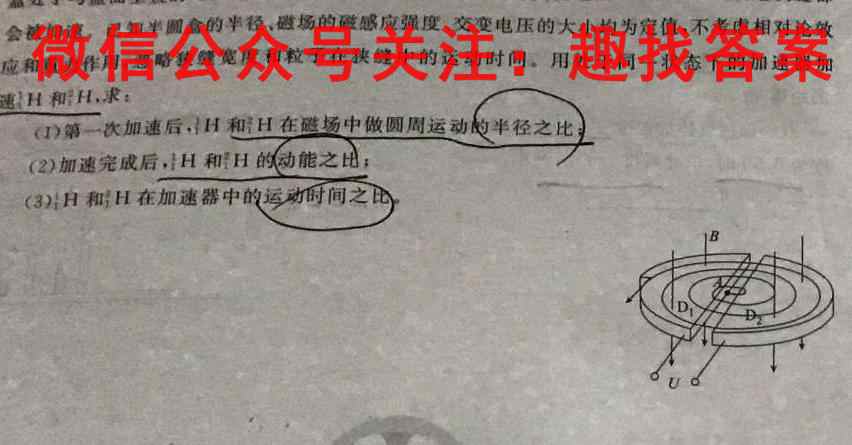 会被加速。已知半圆盒的半径、磁场的磁感应强度、交变电压的大小均为定值,不考虑相对论效
微信公众号关注:趣找答案
应和 作用,忽略狭缝宽度和粒子在狭缝中的运动时间。用 同 状态下的加速器加
速¹₁H和²₁H,求:
(1)第一次加速后,¹₁H和²₁H在磁场中做圆周运动的半径之比;
(2)加速完成后,¹₁H和²₁H的动能之比;
(3)¹₁H和²₁H在加速器中的运动时间之比。
B
A
D₁
D₂
U